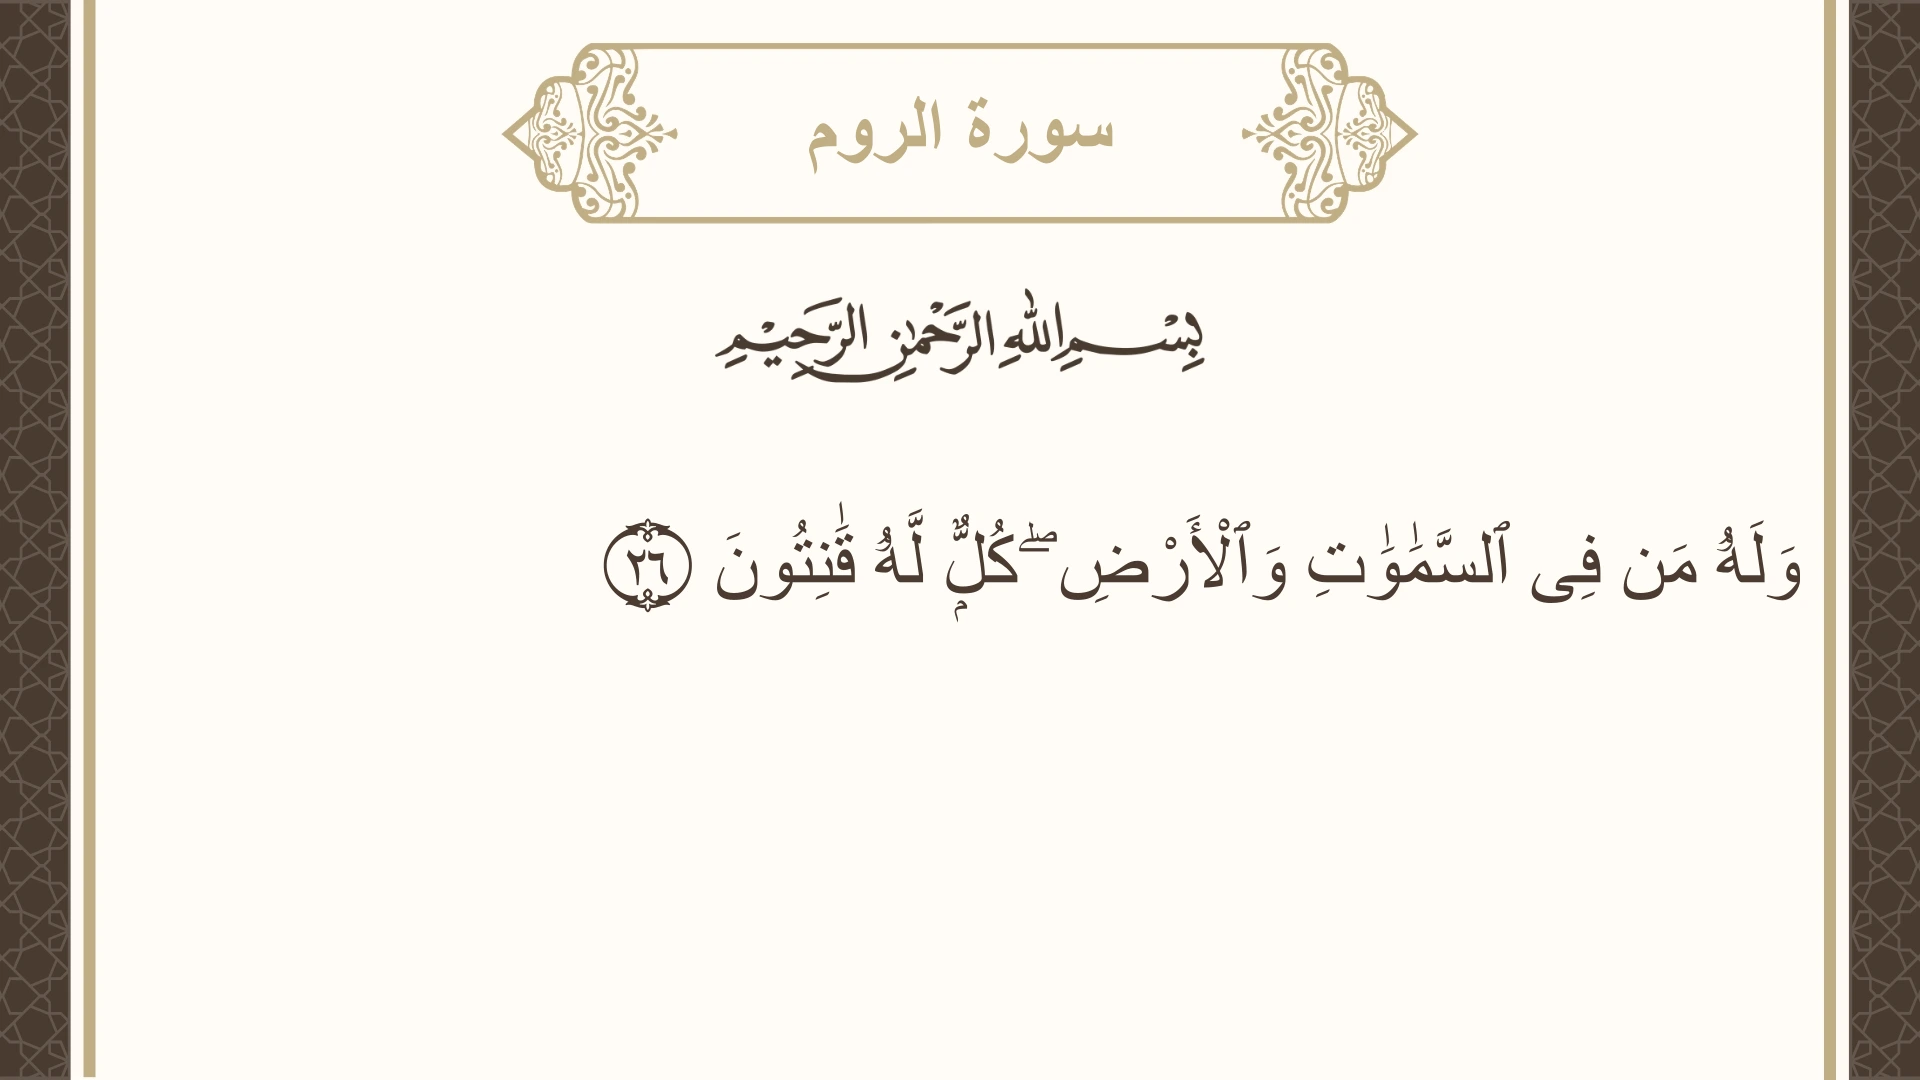 سورة الروم
بِسْمِ اللهِ الرَّحْمٰنِ الرَّحِيْمِ
وَلَهُۥ مَن فِى ٱلسَّمَـٰوَٰتِ وَٱلْأَرْضِ ۖ كُلٌّۭ لَّهُۥ قَـٰنِتُونَ ٢٦